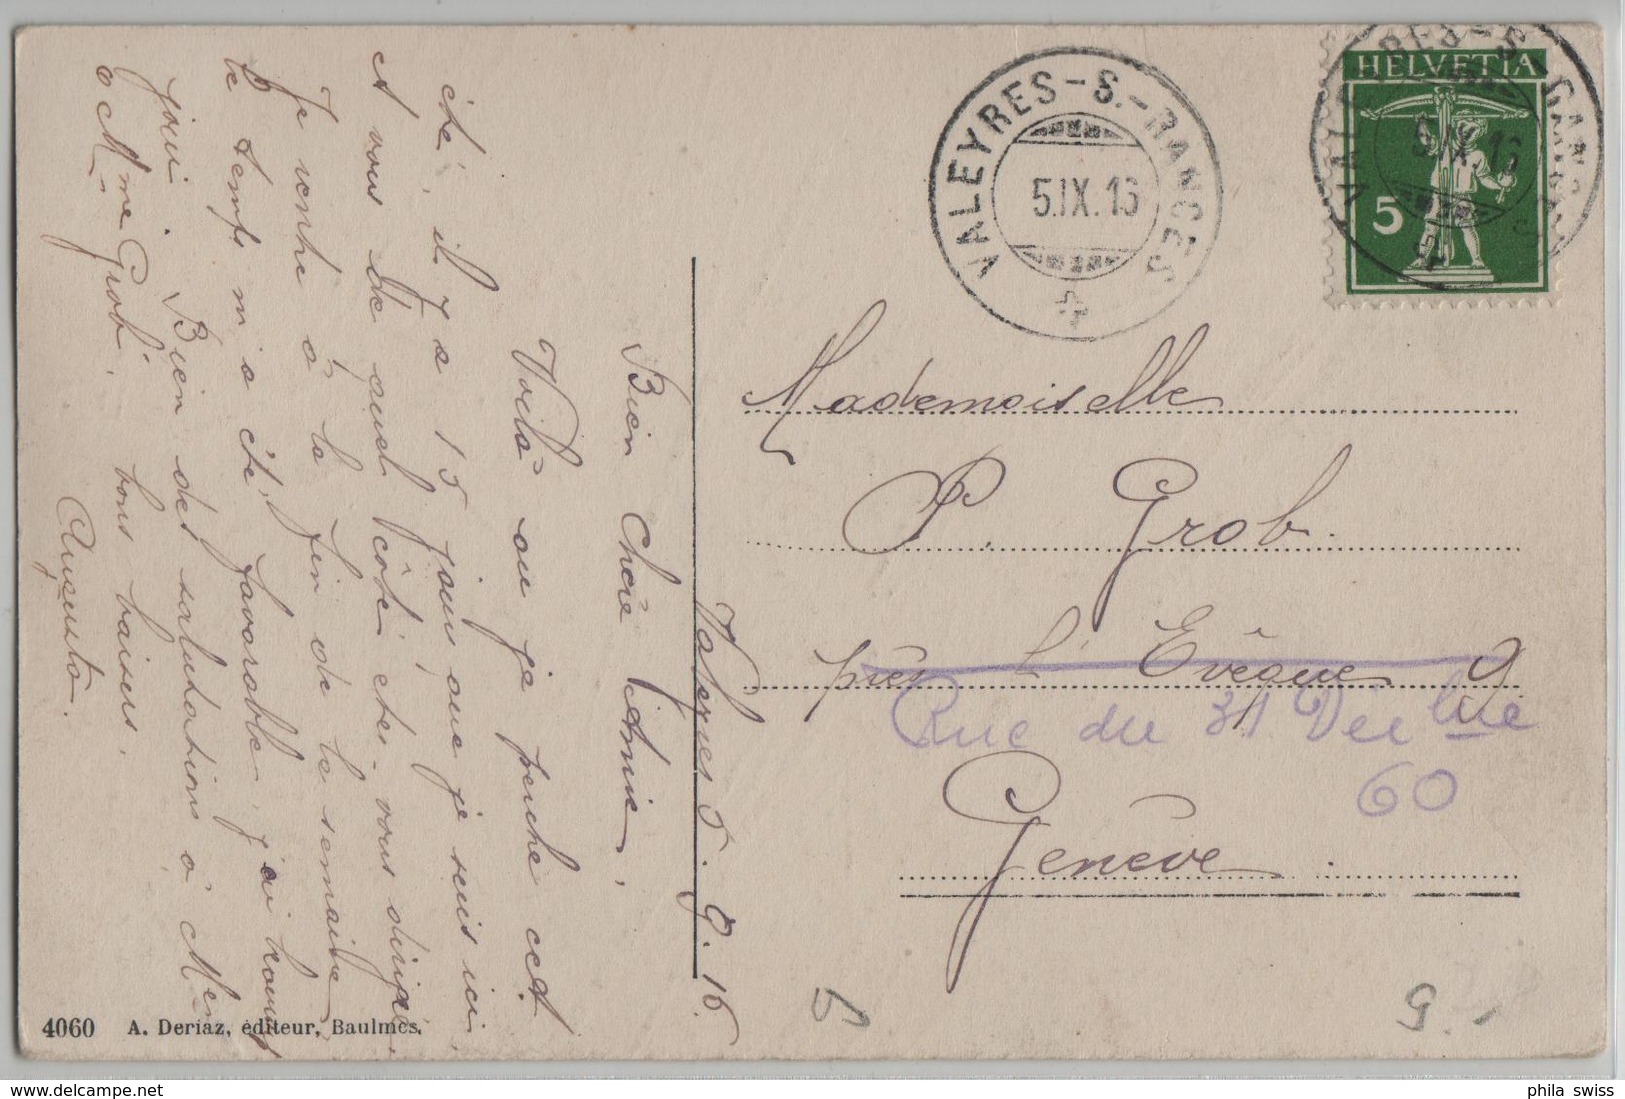 Valeyres 5.9.16.
Bien Chère Amie,
Voilà ou je penche cet
été, il y a 15 jours que je suis ici
et vous de quel côté êtes-vous dirigée
Je rentre à la fin de la semaine,
le temps m'a été favorable, j'ai
joui. Bien des salutations à
à Mme Grob, bons baisers.
Augusta.
4060 A. Deriaz, éditeur, Baulmes.
VALEYRES-S.-RANCES
5.IX.16
HELVETIA
5
VALEYRES-S.-RANCES
5.IX.16
Mademoiselle
P. Grob.
près l'Evêque 9
Rue du 31 Décbre
60
Genève
5
9.-
phila swiss